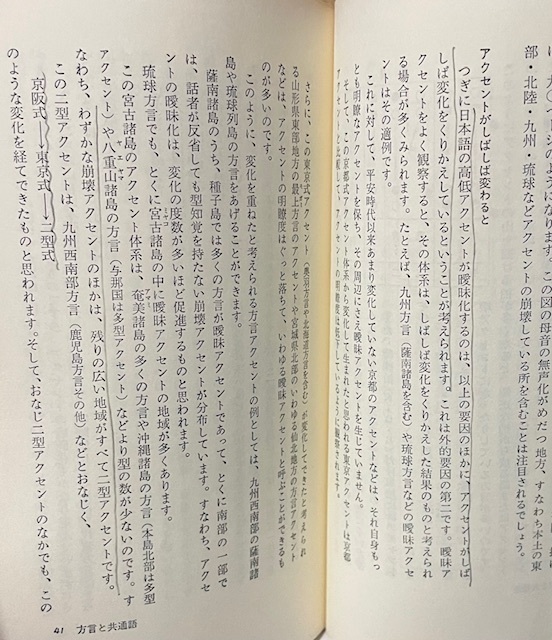 この図の母音の無声化がめだつ地方、すなわち本土の東
部・北陸・九州・琉球などアクセントの崩壊している所を含むことは注目されるでしょう。
アクセントがしばしば変わると
つぎに日本語の高低アクセントが曖昧化するのは、以上の要因のほかに、アクセントがしば
しば変化をくりかえしているということが考えられます。これは外的要因の第二です。曖昧ア
クセントをよく観察すると、その体系は、しばしば変化をくりかえした結果のものと考えられ
る場合が多くみられます。たとえば、九州方言（薩南諸島を含む）や琉球方言などの曖昧アク
セントはその適例です。
これに対して、平安時代以来あまり変化していない京都のアクセントなどは、それ自身もっ
とも明瞭なアクセントを保ち、その周辺にさえ曖昧アクセントを生じていません。
そして、この京都式アクセント体系から変化して生まれたと思われる東京アクセントは京都
アクセントに比較してアクセントの明瞭度は低下しているように観察されます。
さらに、この東京式アクセント（奥羽方言や北海道方言を含む）が変化してできたと考えられ
る山形県東部地方の最上方言のアクセントや宮城県北部のいわゆる仙北地方の方言アクセント
などは、アクセントの明瞭度はぐっと落ちて、いわゆる曖昧アクセントと呼ぶことができるも
のが多いのです。
このように、変化を重ねたと考えられる方言アクセントの例としては、九州西南部の薩南諸
島や琉球列島の方言をあげることができます。
薩南諸島のうち、種子島では多くの方言が曖昧アクセントであって、とくに南部の一部で
は、話者が反省しても型知覚を持たない崩壊アクセントが分布しています。すなわち、アクセ
ントの曖昧化は、変化の度数が多いほど促進するものと思われます。
琉球方言でも、とくに宮古諸島の中に曖昧アクセントの地域が多くあります。
この宮古諸島のアクセント体系は、奄美諸島の多くの方言や沖縄諸島の方言（本島北部は多型
アクセント）や八重山諸島の方言（与那国は多型アクセント）などより型の数が少ないのです。す
なわち、わずかな崩壊アクセントのほかは、残りの広い地域がすべて二型アクセントです。
この二型アクセントは、九州西南部方言（鹿児島方言その他）などとおなじく、
京阪式→東京式→二型式
のような変化を経てできたものと思われます。そして、おなじ二型アクセントのなかでも、この
41 方言と共通語